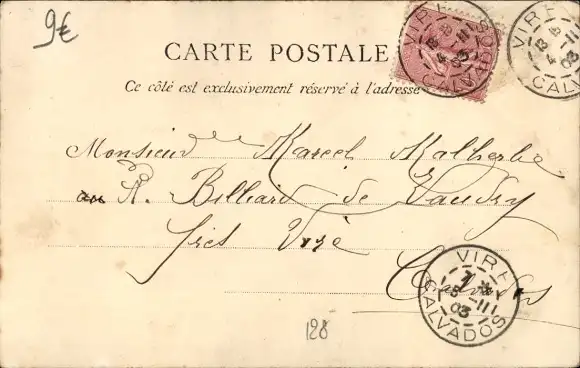 9€
CARTE POSTALE
Ce côté est exclusivement réservé à l'adresse
VIRE
CALVADOS
VIRE
CALVADOS
Monsieur Marcel Malherbe
au R. Billiard de Vaudry
près Vire
Calvados
VIRE
CALVADOS
128